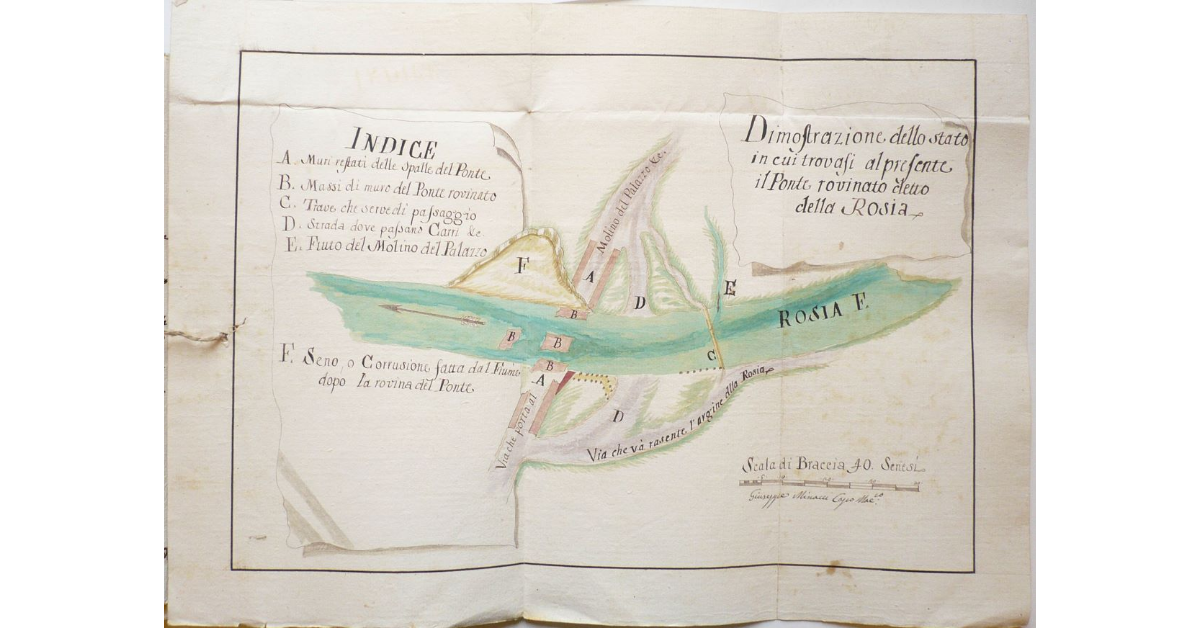 INDICE
A. Muri restati delle Spalle del Ponte
B. Massi di muro del Ponte rovinato
C. Trave che serve di passaggio
D. Strada dove passano Carri &c
E. Fiuto del Molino del Palazzo
F. Seno, o Corrusione fatta dal Fiume
dopo la rovina del Ponte
Dimostrazione dello stato
in cui trovasi al presente
il Ponte rovinato detto
della ROSIA
Molino del Palazzo &c.
F
A
D
E
B
B
B
B
ROSIA F.
C
A
D
Via che porta al
Via che và rasente l'argine alla Rosia
Scala di Braccia 40. Senesi
Giuseppe Minacci Capo Mae.ro